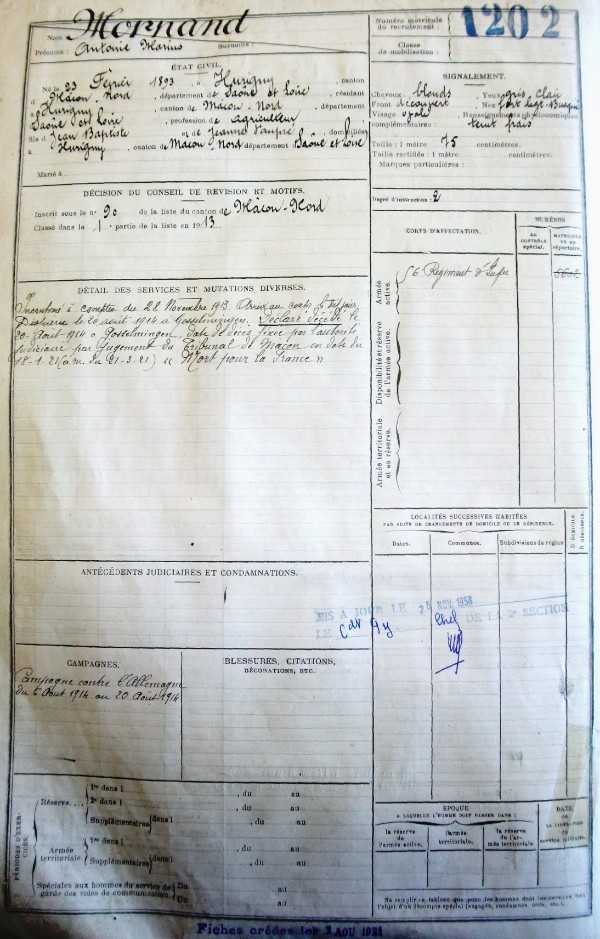 Nom : Mornand
Prénoms : Antonie Marius Surnoms :
Numéro matricule du recrutement : 1202
Classe de mobilisation :
ÉTAT CIVIL.
Né le 23 Février 1893 à Hurigny, canton
d Mâcon-Nord, département de Saône et Loire, résidant
à Hurigny, canton de Mâcon-Nord, département
Saône et Loire, profession de agriculteur
fils d Jean Baptiste et de Jeanne, domiciliés
à Hurigny, canton de Macon Nord département Saône et Loire
Marié à
SIGNALEMENT.
Cheveux blonds Yeux gris, clair
Front découvert Nez fort légt Busqué
Visage ovale Renseignements physionomiques
complémentaires : teint frais
Taille : 1 mètre 75 centimètres.
Taille rectifiée : 1 mètre centimètres.
Marques particulières :
Degré d'instruction : 2
DÉCISION DU CONSEIL DE REVISION ET MOTIFS.
Inscrit sous le n° 90 de la liste du canton de Mâcon-Nord
Classé dans le 1e partie de la liste en 1913
CORPS D'AFFECTATION.
NUMÉROS
AU CONTRÔLE spécial.
MATRICULE OU AU répertoire.
Armée active.
56 Régiment d'Infie
Disponibilité et réserve de l'armée active.
Armée territoriale et sa réserve.
DÉTAIL DES SERVICES ET MUTATIONS DIVERSES.
Incorporé à compter du 28 Novembre 1913. Arrivé au corps le dit jour.
Disparu le 20 août 1914 à Gosselmingen. Déclaré décédé le
20 Août 1914 à Gosselmingen, date de décès fixée par l'autorité
judiciaire par jugement du Tribunal de Macon en date du
18-1-21 (a.m. du 21-3-21) « Mort pour la France »
LOCALITÉS SUCCESSIVES HABITÉES
PAR SUITE DE CHANGEMENTS DE DOMICILE OU DE RÉSIDENCE.
Dates.
Communes.
Subdivisions de région
D. DOMICILE.
R. RÉSIDENCE.
ANTÉCÉDENTS JUDICIAIRES ET CONDAMNATIONS.
MIS A JOUR LE 25 NOV. 1958
LE DE LA 2e SECTION
CAMPAGNES.
Campagne contre l'Allemagne
du 6 Août 1914 au 20 Août 1914
BLESSURES, CITATIONS,
DÉCORATIONS, ETC.
PÉRIODES D'EXERCICES.
Réserve
1re dans l , du au
2e dans l , du au
Supplémentaires dans l , du au
Armée territoriale.
1re dans l , du au
Supplémentaires dans l , du au
Spéciales aux hommes du service de
garde des voies de communication.
Du au
Du au
ÉPOQUE
À LAQUELLE L'HOMME DOIT PASSER DANS :
la réserve de l'armée active.
l'armée territoriale.
la réserve de l'armée territoriale.
DATE DE LA LIBÉRATION du service militaire.
Ne remplir ce tableau que pour les hommes dont les services font
l'objet d'un décompte spécial (engagés, condamnés, omis, etc.).
Fiches créées les AOU 1921